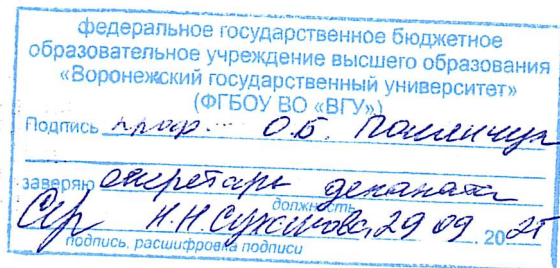 федеральное государственное бюджетное
образовательное учреждение высшего образования
«Воронежский государственный университет»
(ФГБОУ ВО «ВГУ»)
Подпись проф. О.Б.
заверяю секретарь деканата
должность
Н.Н. 29 09 20 21
подпись, расшифровка подписи